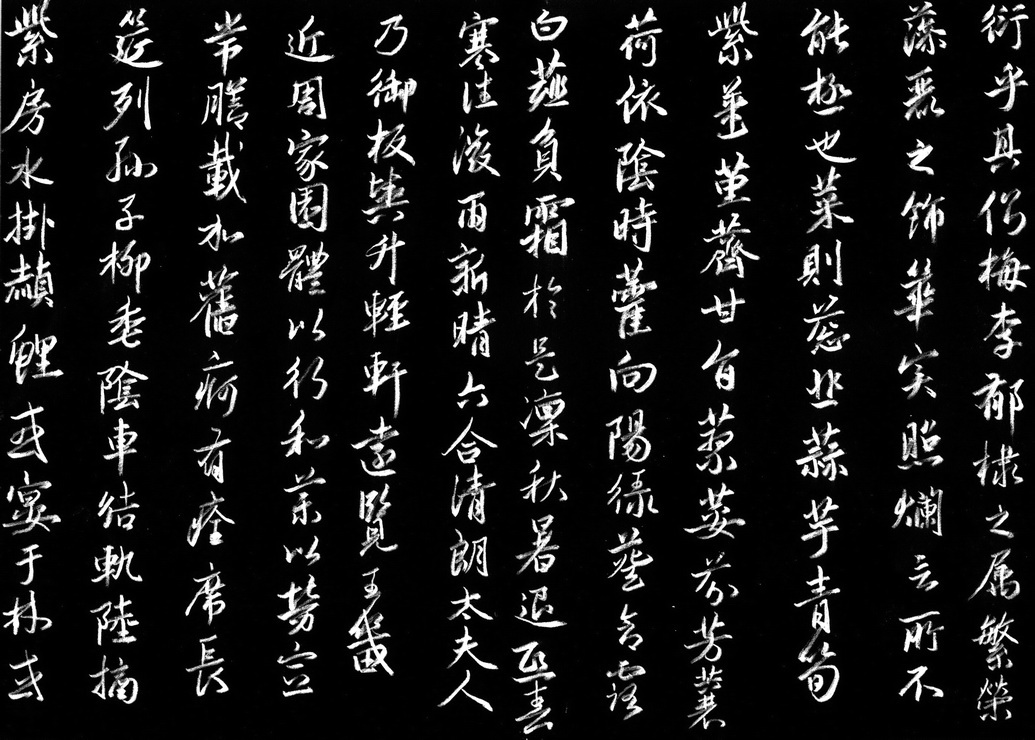 衍乎其側梅李郁棣之属繁榮
藻麗之飾華实照爛言所不
能極也菜則葱韭蒜芋青筍
紫薑堇薺甘旨蓼荽芬芳蘘
荷依陰時藿向陽綠葵含露
白薤負霜於是凜秋暑退熙春
寒往微雨新晴六合清朗太夫人
乃御板輿升輕軒遠覽王畿
近周家園體以行和藥以勞宣
常膳載加舊痾有痊席長
筵列孫子柳垂陰車結軌陸摘
紫房水掛赬鯉或宴于林或